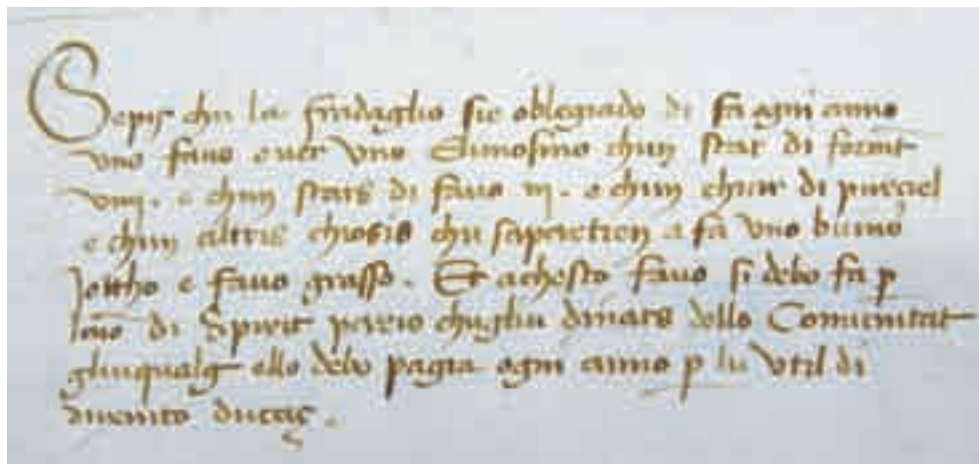 Sepis chu la frадaglio sie oblegado di fa ogni anno
uno favo over uno Elimosino chun star di forment
viiij. e chun stars di favo iij. e chun char di purçel
e chun altris chosis chu sapartien a fa uno buino
jotho e favo grasso. Et achesto favo si debo fa p
lono di Spirit perzo chugliu dinars dello Comunitat
gliuqualg ello debo pagia ogni anno p lu util di
ducento ducaç.